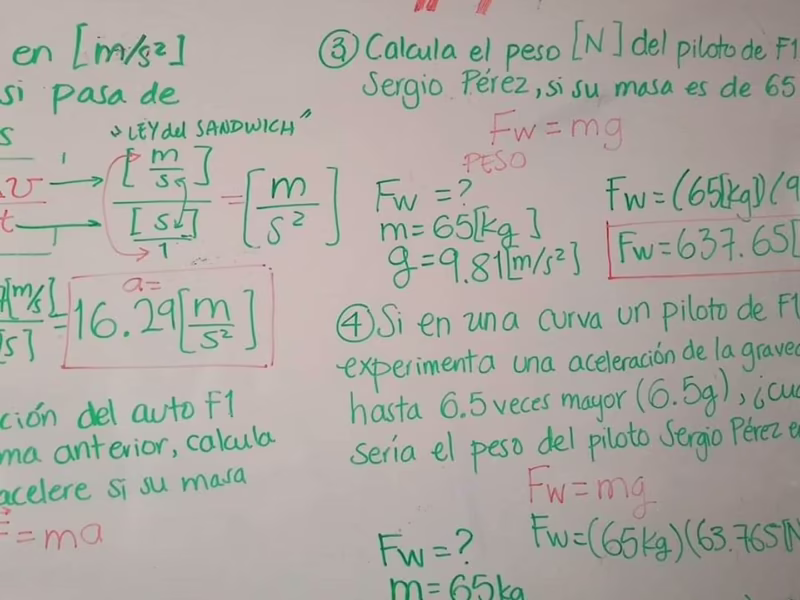 en [m/s²]
si pasa de
s
→ LEY del SANDWICH"
[m/s]
[s]
1
= [m/s²]
t
[m/s]
[s]
a=
= 16.29 [m/s²]
ción del auto F1
ma anterior, calcula
acelere si su masa
F = ma
③ Calcula el peso [N] del piloto de F1
Sergio Pérez, si su masa es de 65
Fw = mg
PESO
Fw = ?
m = 65[kg]
g = 9.81[m/s²]
Fw = (65[kg])(9
Fw = 637.65[
④ Si en una curva un piloto de F1
experimenta una aceleración de la grave
hasta 6.5 veces mayor (6.5g), ¿cu
sería el peso del piloto Sergio Pérez e
Fw = mg
Fw = ?
m = 65kg
Fw = (65kg)(63.765[